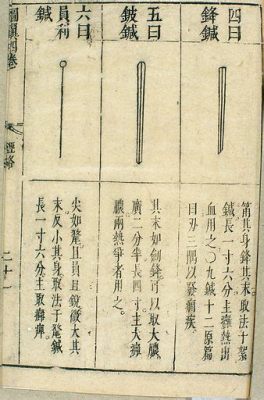 四曰
鋒鍼
筩其身鋒其末取法于絮
鍼長一寸六分主癰熱出
血用之〇九鍼十二原篇
曰刃三隅以發痼疾
五曰
鈹鍼
其末如劍鋒可以取大膿
廣二分半長四寸主大癰
膿兩熱爭者用之
六曰
員利
鍼
尖如氂且員且銳微大其
末反小其身取法于氂鍼
長一寸六分主取癰痺
圖翼四卷
經絡
二十一